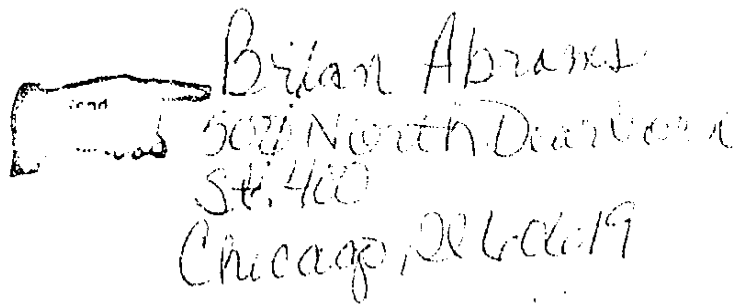 Brian Abrams
500 North Dearborn
St. 400
Chicago, Il